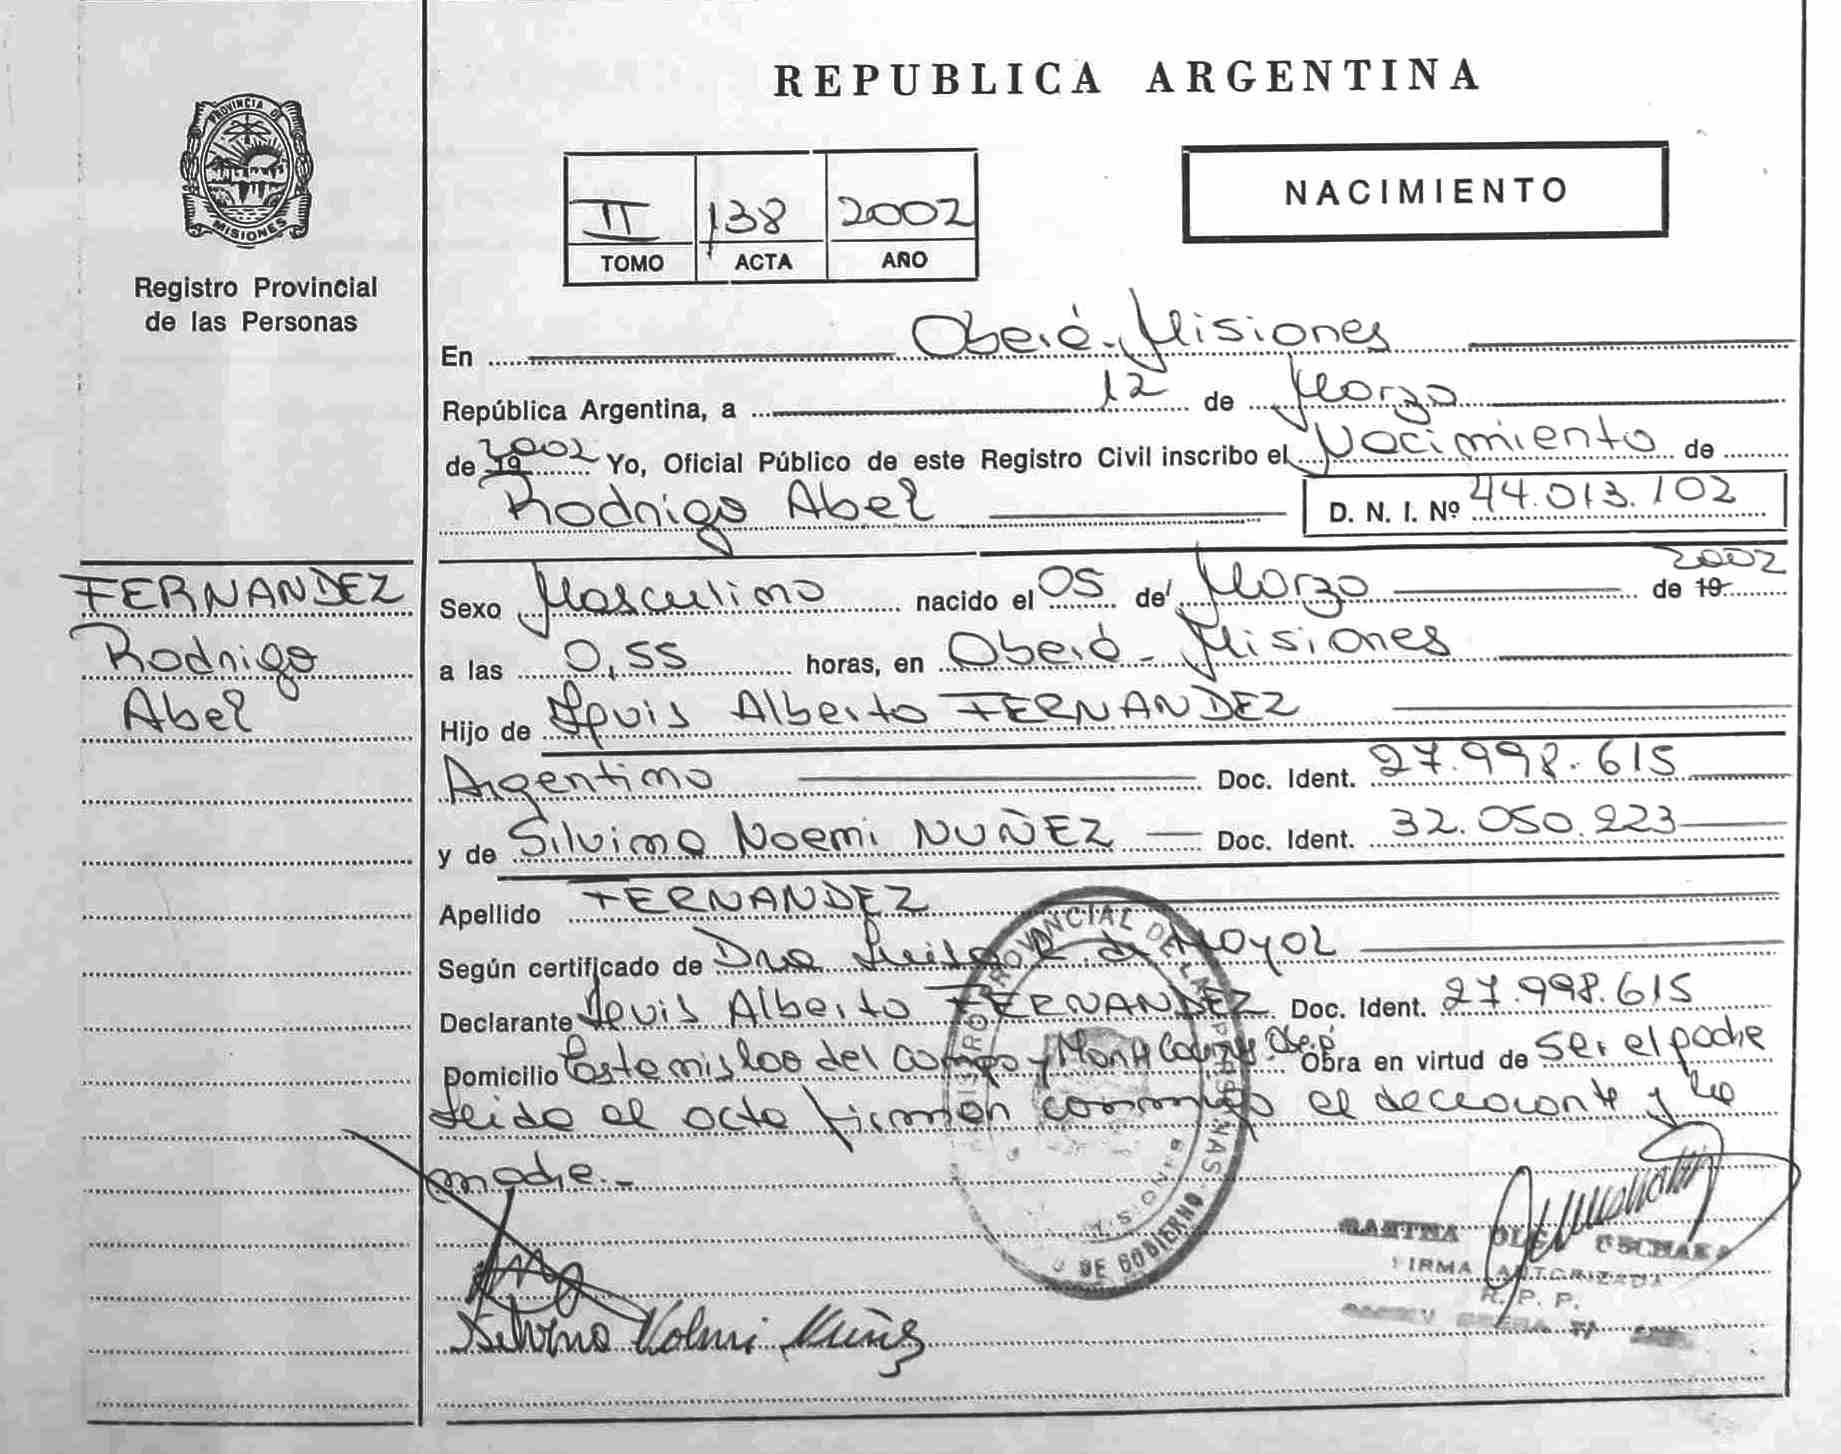 PROVINCIA DE
MISIONES
Registro Provincial
de las Personas
FERNANDEZ
Rodrigo
Abel
REPUBLICA ARGENTINA
II 138 2002
TOMO ACTA AÑO
NACIMIENTO
En Oberá - Misiones
República Argentina, a 12 de Marzo
de 19 2002 Yo, Oficial Público de este Registro Civil inscribo el Nacimiento de
Rodrigo Abel D. N. I. Nº 44.013.102
Sexo Masculino nacido el 05 de Marzo de 19 2002
a las 0,55 horas, en Oberá - Misiones
Hijo de Luis Alberto FERNANDEZ
Argentino Doc. Ident. 27.998.615
y de Silvina Noemi NUÑEZ Doc. Ident. 32.050.223
Apellido FERNANDEZ
Según certificado de Dra de Moyol
Declarante Luis Alberto FERNANDEZ Doc. Ident. 27.998.615
Domicilio Estanislao del Campo y Obra en virtud de ser el padre
Leida el acta firman conmigo el declarante y la
madre.-
PROVINCIAL DE LAS PERSONAS
MISIONES
DE GOBIERNO
OLGA
FIRMA AUTORIZADA
R. P. P.
Silvina Noemi Nuñez